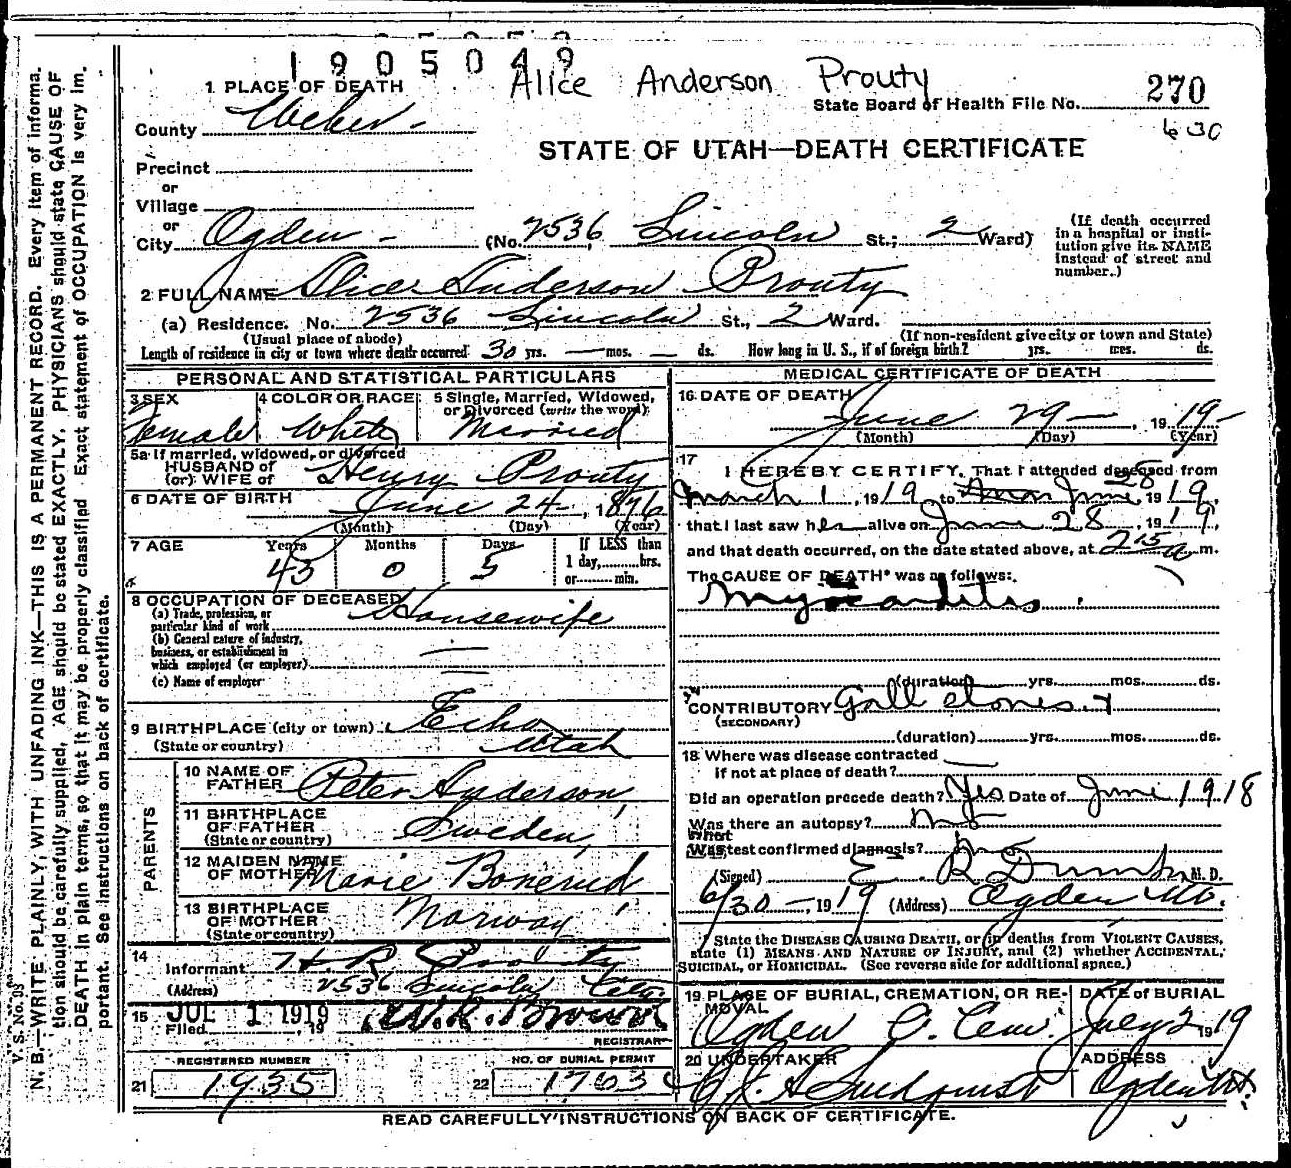 1905049
Alice Anderson Prouty
1 PLACE OF DEATH
State Board of Health File No. 270
630
County Weber
STATE OF UTAH—DEATH CERTIFICATE
Precinct
or
Village
or
City Ogden (No. 2536 Lincoln St.; 2 Ward)
(If death occurred in a hospital or insti-
tution give its NAME
instead of street and
number.)
2 FULL NAME Alice Anderson Prouty
(a) Residence. No. 2536 Lincoln St., 2 Ward.
(Usual place of abode) (If non-resident give city or town and State)
Length of residence in city or town where death occurred 30 yrs. — mos. — ds. How long in U. S., if of foreign birth? yrs. mos. ds.
PERSONAL AND STATISTICAL PARTICULARS
3 SEX Female
4 COLOR OR RACE White
5 Single, Married, Widowed,
or Divorced (write the word)
Married
5a If married, widowed, or divorced
HUSBAND of
(or) WIFE of Henry Prouty
6 DATE OF BIRTH June 24, 1876
(Month) (Day) (Year)
7 AGE Years 43 Months 0 Days 5
If LESS than
1 day, hrs.
or min.
8 OCCUPATION OF DECEASED
(a) Trade, profession, or
particular kind of work Housewife
(b) General nature of industry,
business, or establishment in
which employed (or employer) —
(c) Name of employer —
9 BIRTHPLACE (city or town) Echo
(State or country) Utah
PARENTS
10 NAME OF
FATHER Peter Anderson
11 BIRTHPLACE
OF FATHER
(State or country) Sweden
12 MAIDEN NAME
OF MOTHER Marie
13 BIRTHPLACE
OF MOTHER
(State or country) Norway
14
Informant H. R. Prouty
(Address) 2536 Lincoln
15 JUL 1 1919
Filed 19
REGISTRAR
REGISTERED NUMBER
21 1935
NO. OF BURIAL PERMIT
22 1763
MEDICAL CERTIFICATE OF DEATH
16 DATE OF DEATH
June 29 — , 1919
(Month) (Day) (Year)
17
I HEREBY CERTIFY, That I attended deceased from
March 1, 1919, to June 28 1919,
that I last saw her alive on June 28, 1919,
and that death occurred, on the date stated above, at 2 15 a m.
The CAUSE OF DEATH* was as follows:
Myocarditis
(duration) yrs. mos. ds.
CONTRIBUTORY Gall stones
(SECONDARY)
(duration) yrs. mos. ds.
18 Where was disease contracted
if not at place of death? —
Did an operation precede death? Yes Date of June 1918
Was there an autopsy? no
What
Was test confirmed diagnosis?
(Signed) E. R. M. D.
6/30 — , 1919 (Address) Ogden
State the DISEASE CAUSING DEATH, or in deaths from VIOLENT CAUSES,
state (1) MEANS AND NATURE OF INJURY, and (2) whether ACCIDENTAL,
SUICIDAL, or HOMICIDAL. (See reverse side for additional space.)
19 PLACE OF BURIAL, CREMATION, OR RE-
MOVAL
Ogden C. Cem.
DATE of BURIAL
July 2 1919
20 UNDERTAKER
ADDRESS
Ogden Ut.
READ CAREFULLY INSTRUCTIONS ON BACK OF CERTIFICATE.
V. S. No. 98
N. B.—WRITE PLAINLY, WITH UNFADING INK—THIS IS A PERMANENT RECORD. Every item of informa-
tion should be carefully supplied. AGE should be stated EXACTLY. PHYSICIANS should state CAUSE OF
DEATH in plain terms, so that it may be properly classified. Exact statement of OCCUPATION is very im-
portant. See instructions on back of certificate.